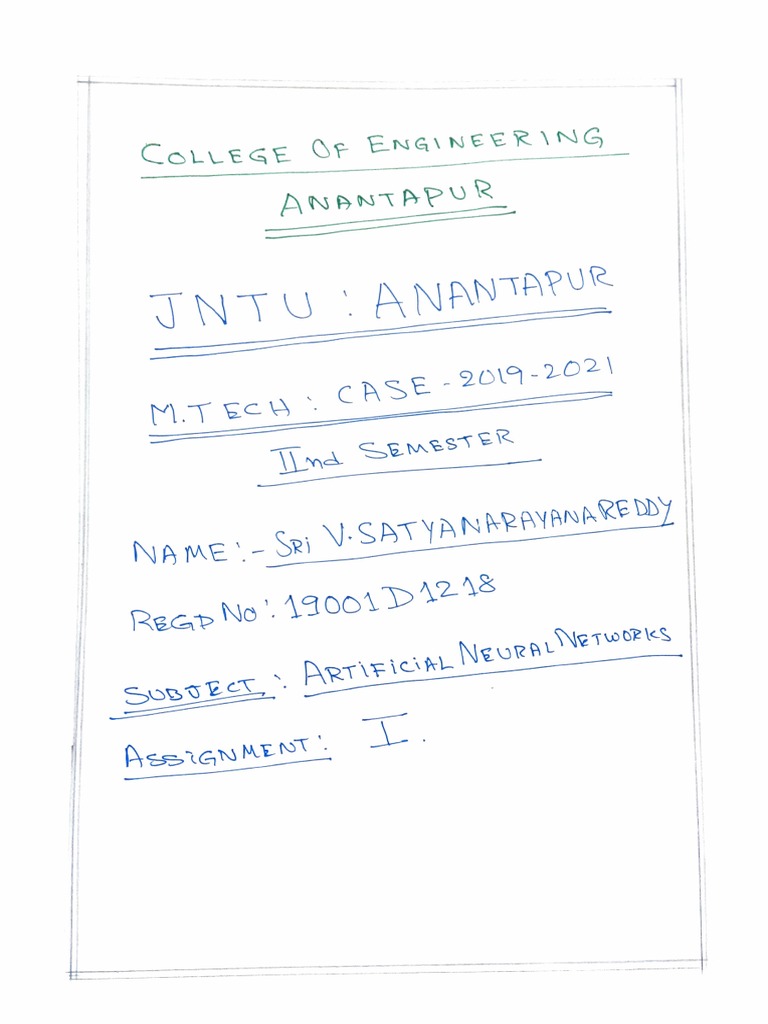 COLLEGE OF ENGINEERING
ANANTAPUR
JNTU : ANANTAPUR
M.TECH : CASE - 2019-2021
IInd SEMESTER
NAME :- SRi V.SATYANARAYANAREDDY
REGD NO : 19001D1218
SUBJECT : ARTiFiCiAL NEURAL NETWORKS
ASSiGNMENT : I.